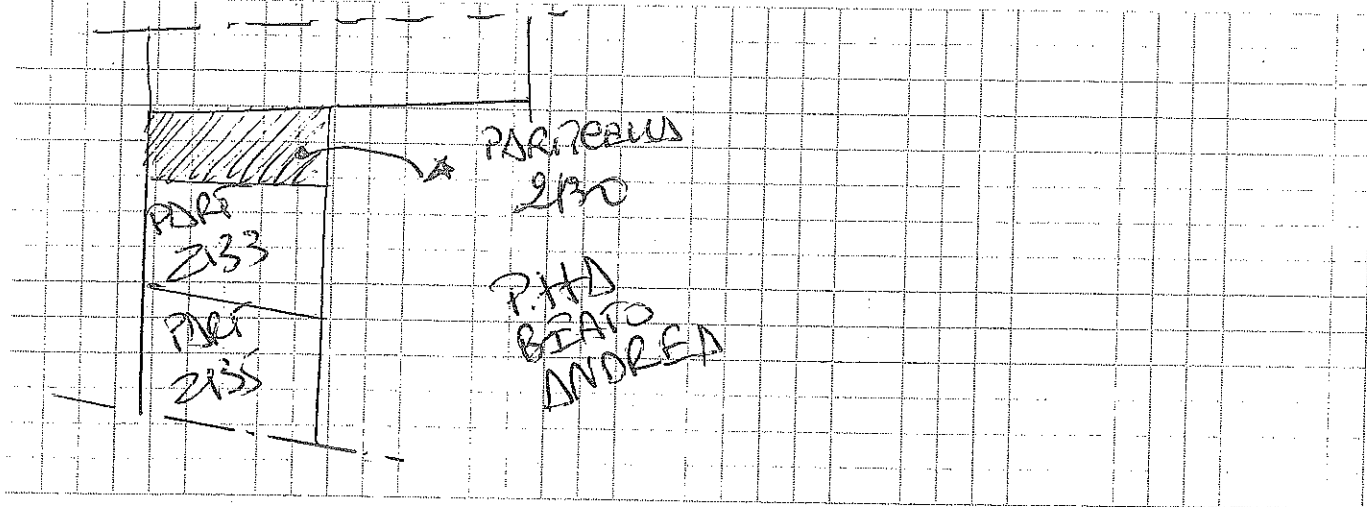 PARTICELLA
2130
PART
2133
PART
2135
P.tta
BEATO
ANDREA